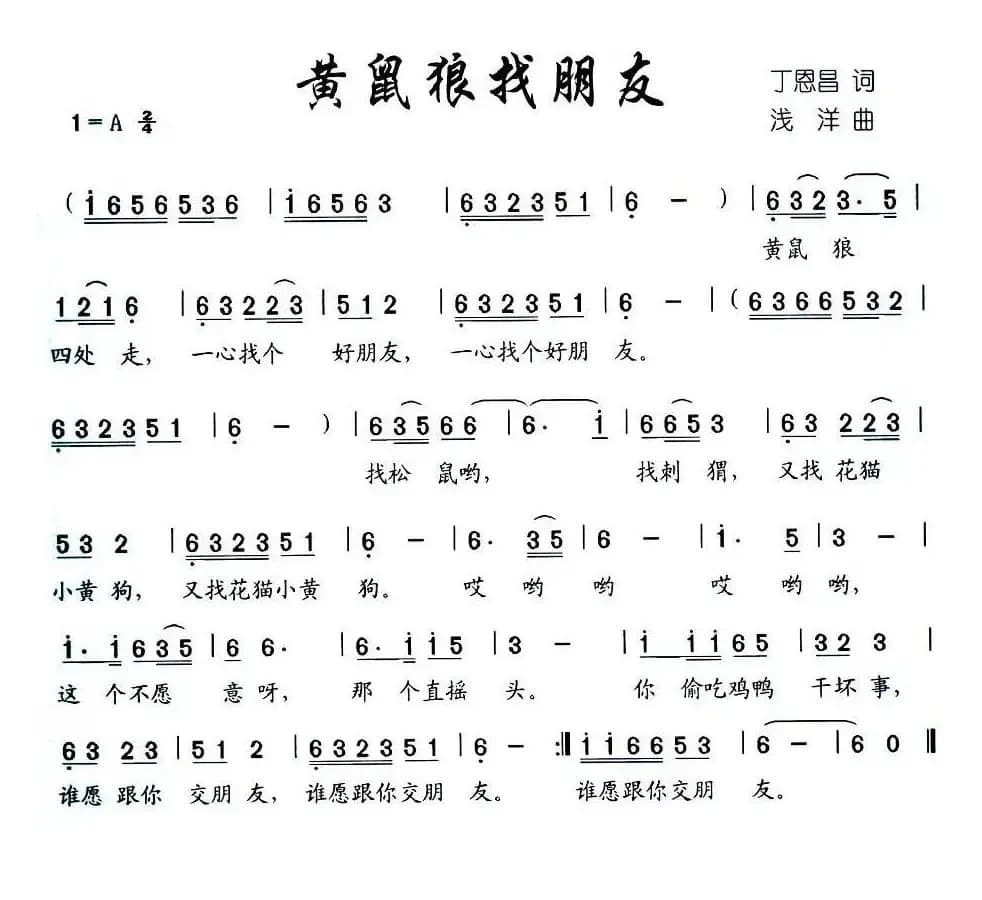 黄鼠狼找朋友
丁恩昌 词
1=A 2/4
浅 洋 曲
( i 6 5 6 5 3 6 | i 6 5 6 3 | 6 3 2 3 5 1 | 6 － ) | 6 3 2 3· 5 |
黄鼠 狼
1 2 1 6 | 6 3 2 2 3 | 5 1 2 | 6 3 2 3 5 1 | 6 － | ( 6 3 6 6 5 3 2 |
四处 走， 一心找个 好朋友， 一心找个好朋 友。
6 3 2 3 5 1 | 6 － ) | 6 3 5 6 6 | 6· i | 6 6 5 3 | 6 3 2 2 3 |
找松 鼠哟， 找刺 猬， 又找 花猫
5 3 2 | 6 3 2 3 5 1 | 6 － | 6· 3 5 | 6 － | i· 5 | 3 － |
小黄 狗， 又找花猫小黄 狗。 哎 哟 哟 哎 哟 哟，
i· i 6 3 5 | 6 6· | 6· i i 5 | 3 － | i i i 6 5 | 3 2 3 |
这 个不愿 意呀， 那 个直摇 头。 你 偷吃鸡鸭 干坏 事，
6 3 2 3 | 5 1 2 | 6 3 2 3 5 1 | 6 － :‖ i i 6 6 5 3 | 6 － | 6 0 ‖
谁愿 跟你 交朋 友， 谁愿跟你交朋 友。 谁愿跟你交朋 友。